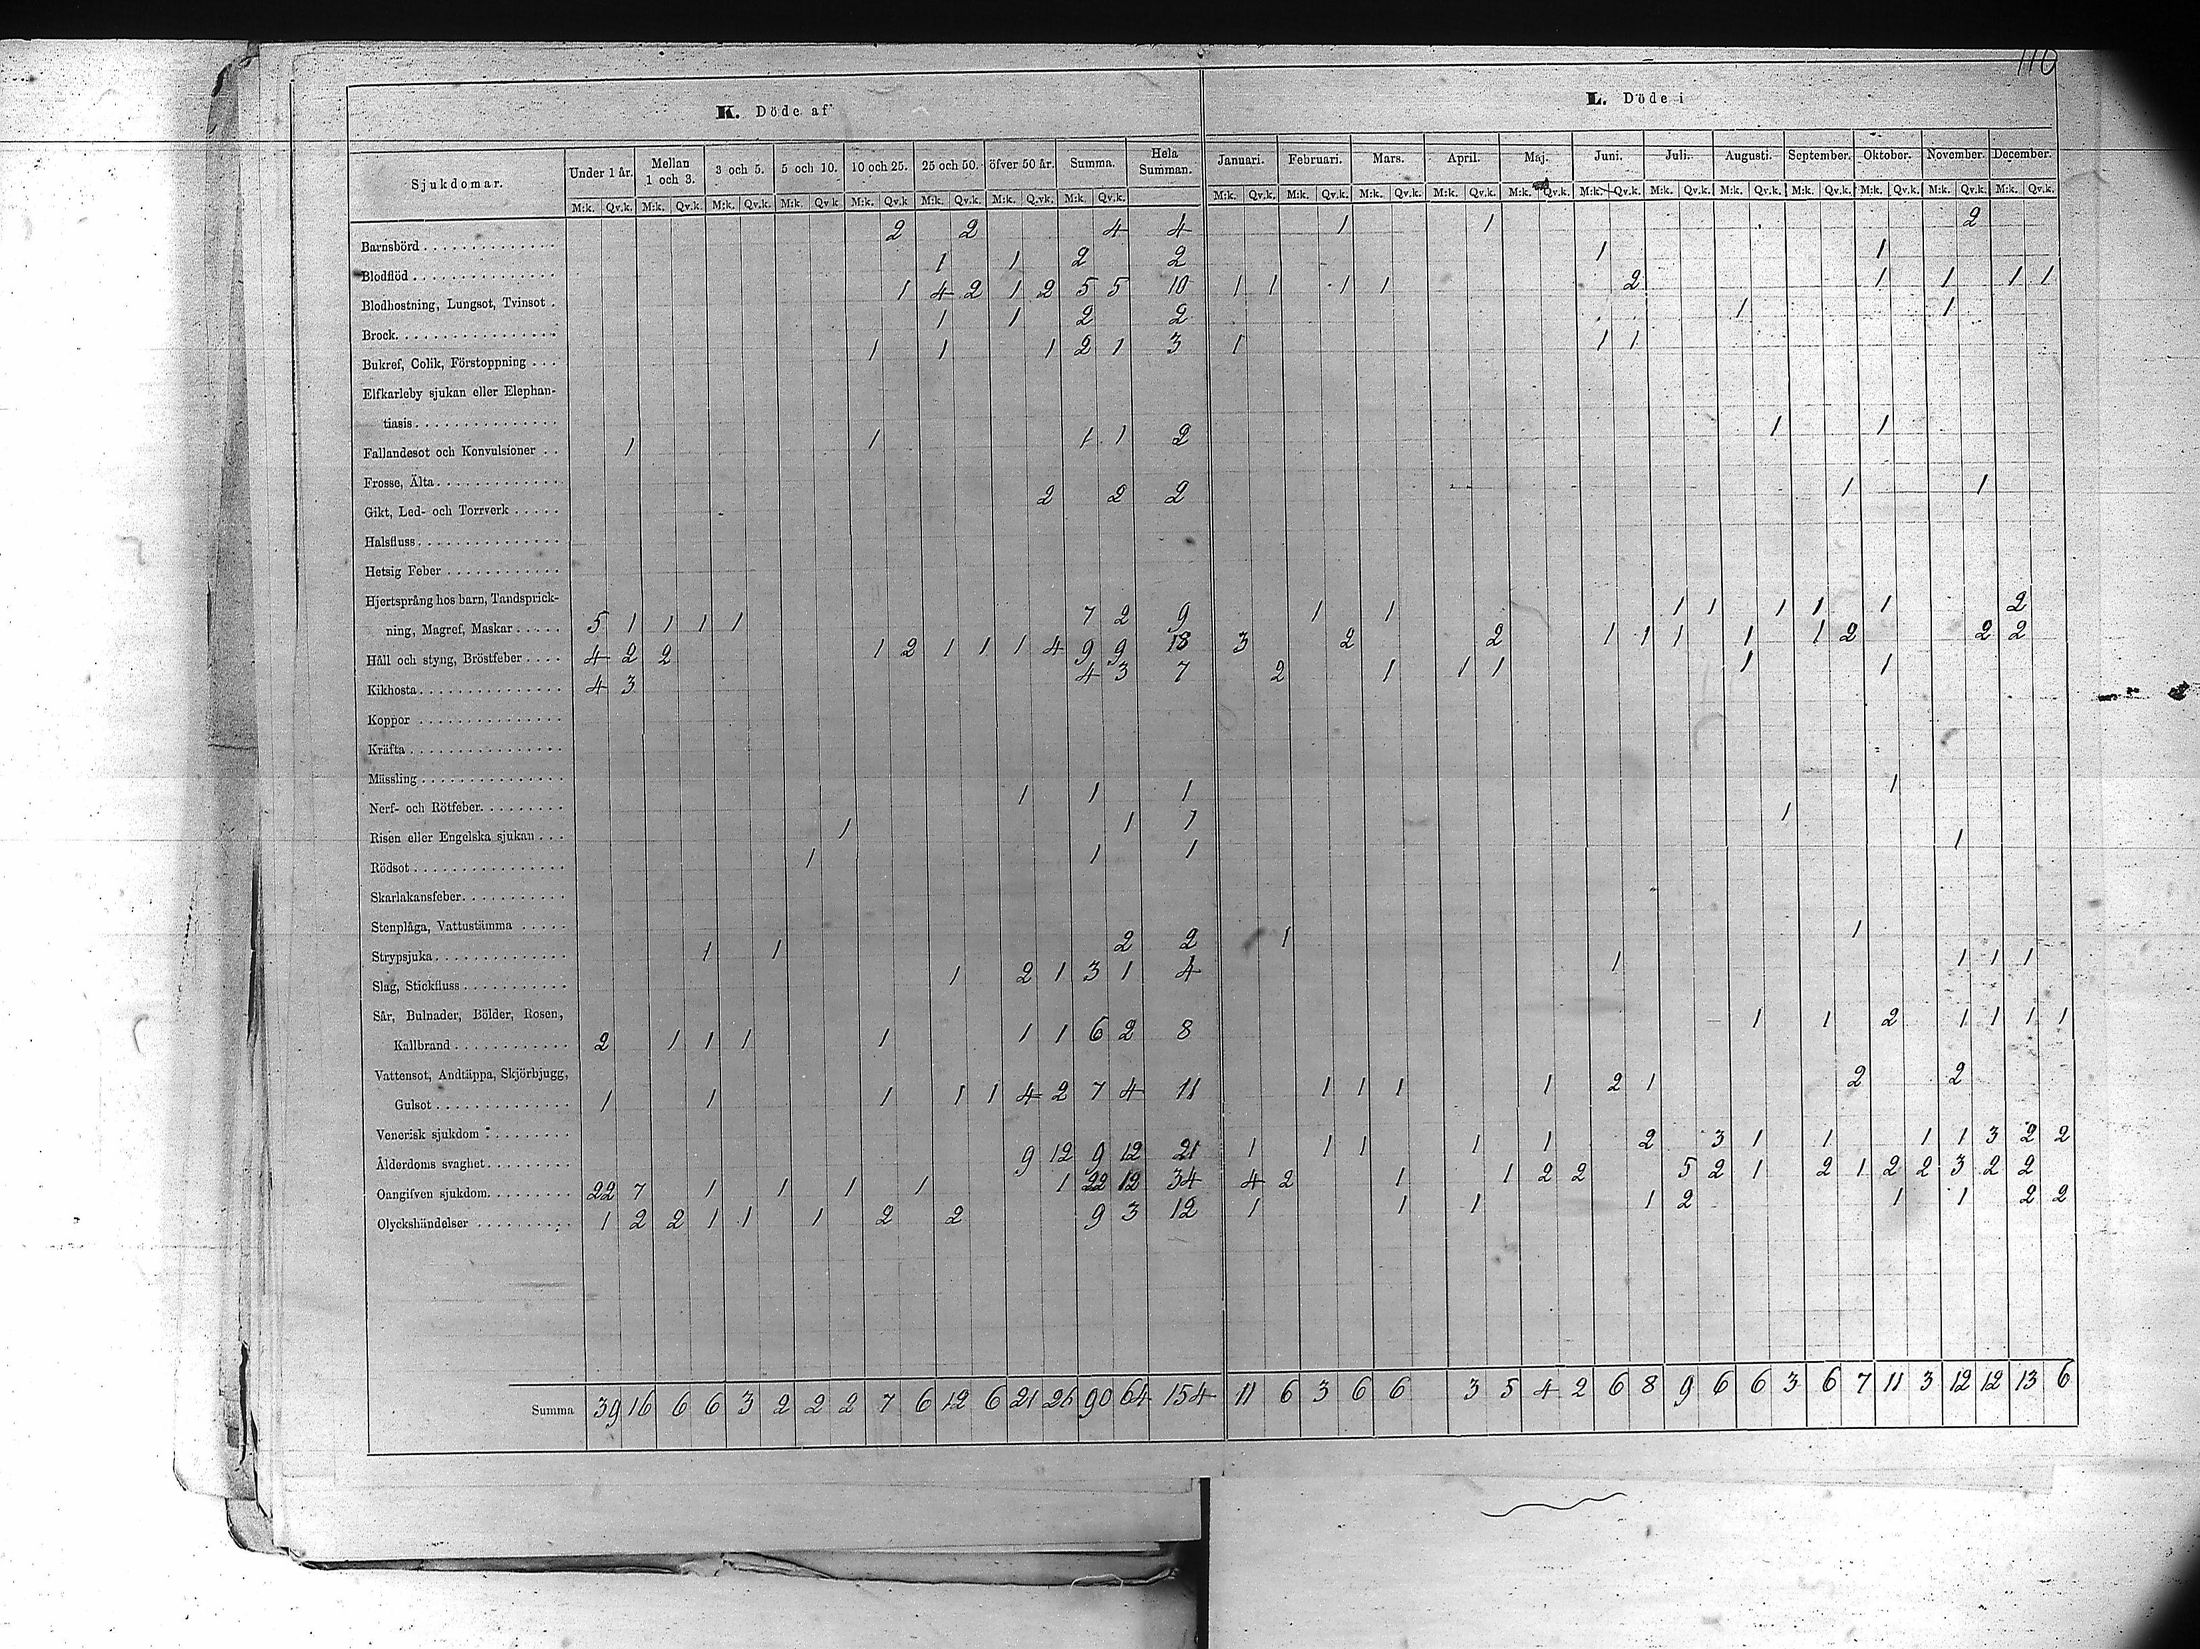 110
K. Döde af L. Döde i
Sjukdomar. Under 1 år. Mellan 1 och 3. 3 och 5. 5 och 10. 10 och 25. 25 och 50. öfver 50 år. Summa. Hela Summan. Januari. Februari. Mars. April. Maj. Juni. Juli. Augusti. September. Oktober. November. December.
M:k. Qv.k. M:k. Qv.k. M:k. Qv.k. M:k. Qv.k M:k. Qv.k M:k. Qv.k. M:k. Q.vk. M:k. Qv.k. M:k. Qv.k. M:k. Qv.k. M:k. Qv.k. M:k. Qv.k. M:k. Qv.k. M:k. Qv.k. M:k. Qv.k. M:k. Qv.k. M:k. Qv.k. M:k. Qv.k. M:k. Qv.k. M:k. Qv.k.
Barnsbörd 2 2 4 4 1 1 2
Blodflöd 1 1 2 2 1 1
Blodhostning, Lungsot, Tvinsot 1 4 2 1 2 5 5 10 1 1 1 1 2 1 1 1 1
Brock 1 1 2 2 1 1
Bukref, Colik, Förstoppning 1 1 1 2 1 3 1 1 1
Elfkarleby sjukan eller Elephan-
tiasis
Fallandesot och Konvulsioner 1 1 1 1 2 1 1
Frosse, Älta
Gikt, Led- och Torrverk 2 2 2 1 1
Halsfluss
Hetsig Feber
Hjertsprång hos barn, Tandsprick-
ning, Magref, Maskar 5 1 1 1 1 7 2 9 1 1 1 1 1 1 1 2
Håll och styng, Bröstfeber 4 2 2 1 2 1 1 1 4 9 9 18 3 2 2 1 1 1 1 1 2 2 2
Kikhosta 4 3 4 3 7 2 1 1 1 1 1
Koppor
Kräfta
Mässling
Nerf- och Rötfeber 1 1 1 1
Risen eller Engelska sjukan 1 1 1 1
Rödsot 1 1 1 1
Skarlakansfeber
Stenplåga, Vattustämma
Strypsjuka 1 1 2 2 1 1
Slag, Stickfluss 1 2 1 3 1 4 1 1 1 1
Sår, Bulnader, Bölder, Rosen,
Kallbrand 2 1 1 1 1 1 1 6 2 8 1 1 2 1 1 1 1
Vattensot, Andtäppa, Skjörbjugg,
Gulsot 1 1 1 1 1 4 2 7 4 11 1 1 1 1 2 1 2 2
Venerisk sjukdom
Ålderdoms svaghet 9 12 9 12 21 1 1 1 1 1 2 3 1 1 1 1 3 2 2
Oangifven sjukdom 22 7 1 1 1 1 1 22 12 34 4 2 1 1 2 2 5 2 1 2 1 2 2 3 2 2
Olyckshändelser 1 2 2 1 1 1 2 2 9 3 12 1 1 1 1 2 1 1 2 2
Summa 39 16 6 6 3 2 2 2 7 6 12 6 21 26 90 64 154 11 6 3 6 6 3 5 4 2 6 8 9 6 6 3 6 7 11 3 12 12 13 6